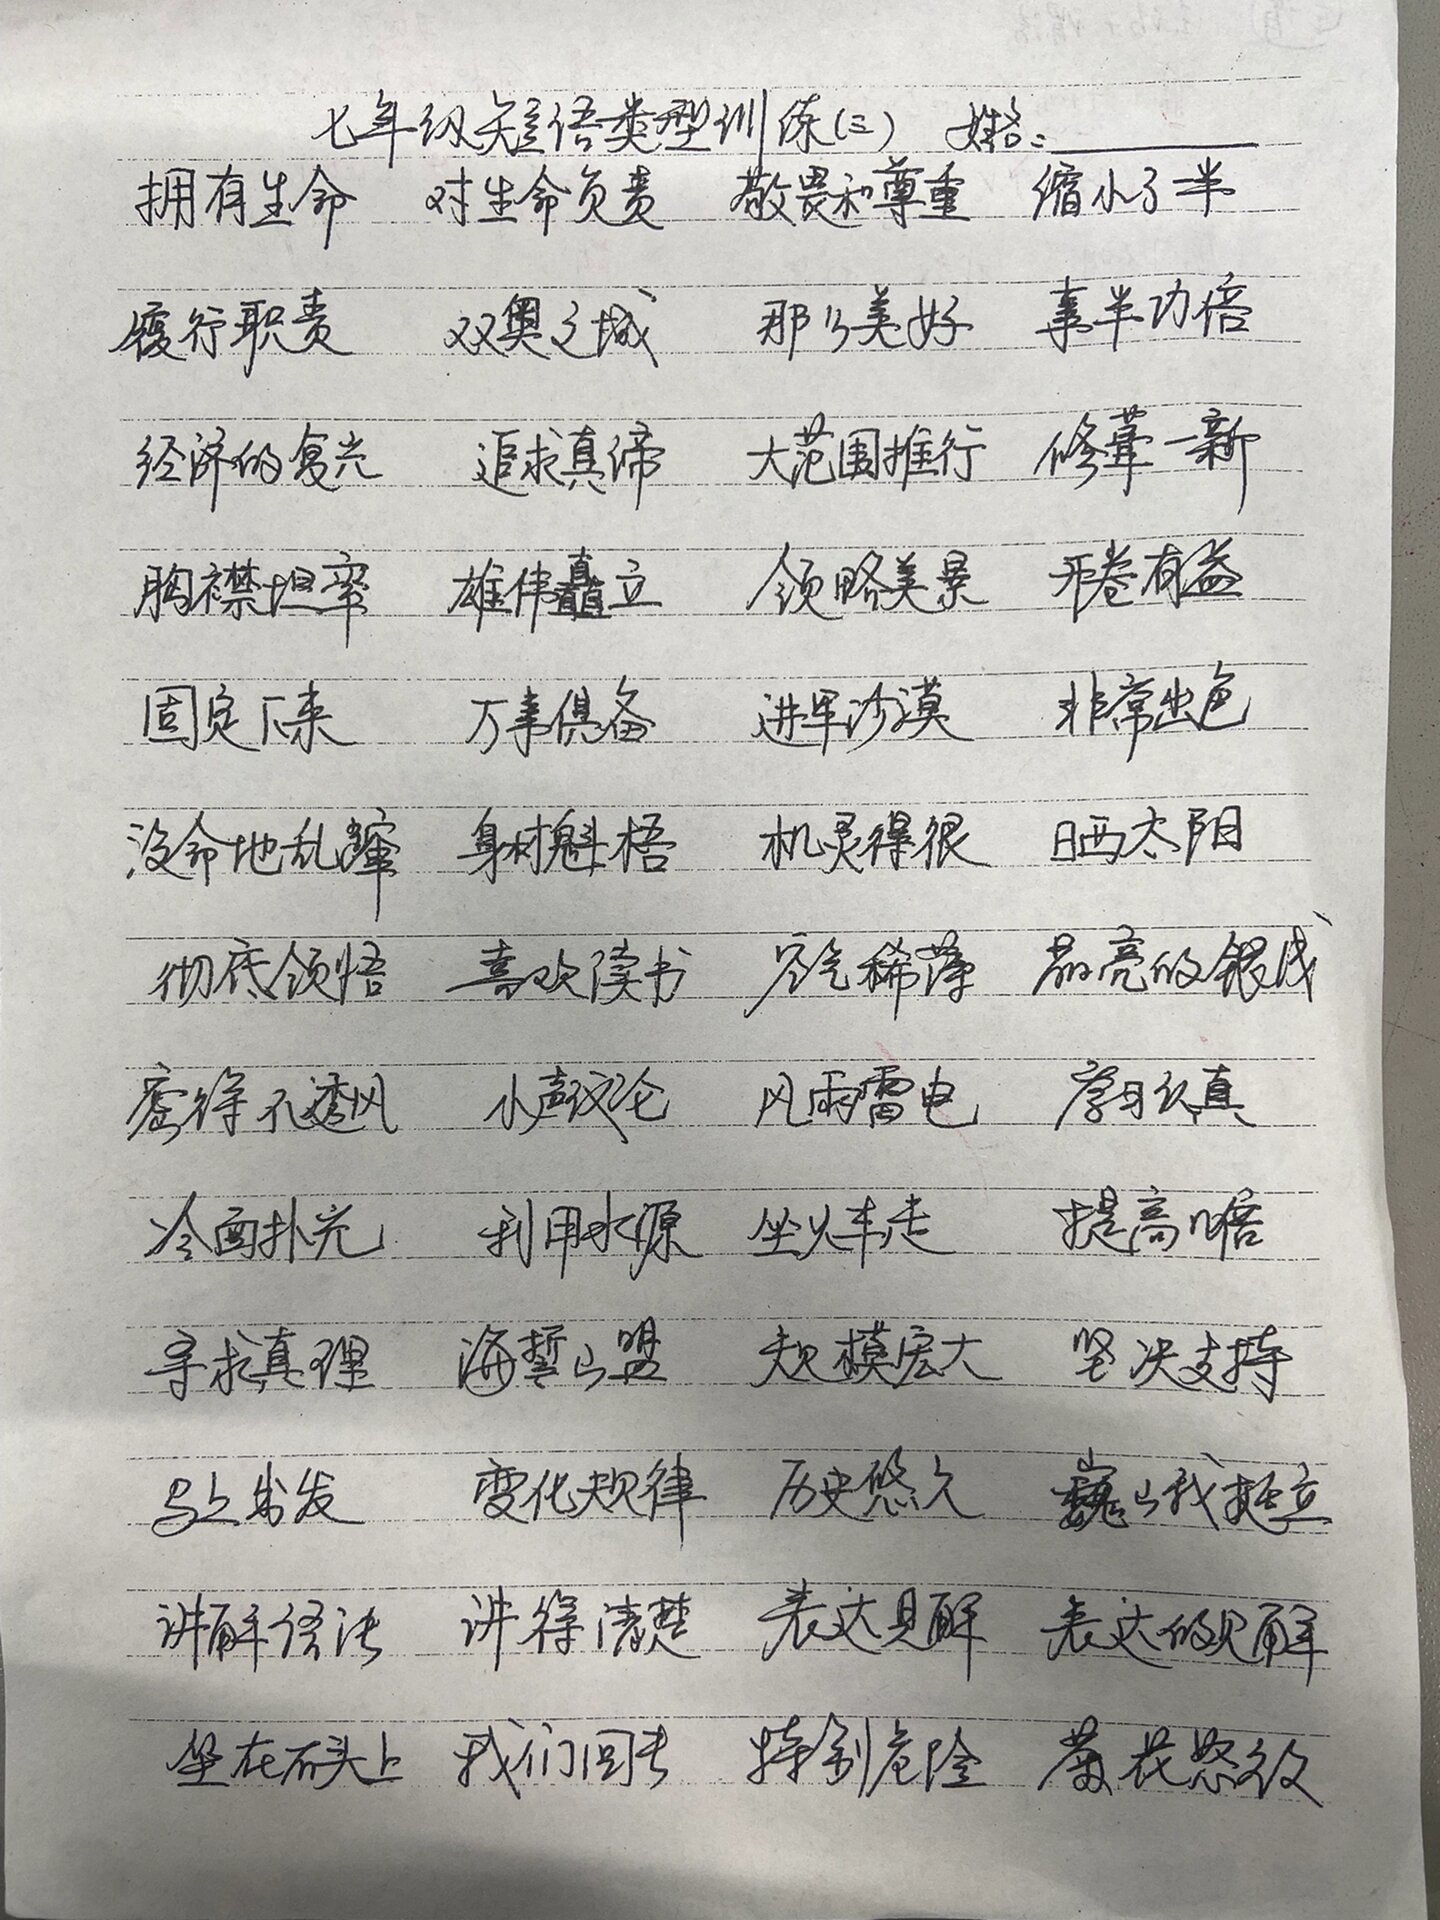 七年级短语类型训练(三) 姓名:
拥有生命 对生命负责 敬畏和尊重 缩小了一半
履行职责 双奥之城 那么美好 事半功倍
经济的复兴 追求真谛 大范围推行 修葺一新
胸襟坦率 雄伟矗立 领略美景 开卷有益
固定下来 万事俱备 进军沙漠 非常出色
没命地乱蹿 身材魁梧 机灵得很 晒太阳
彻底领悟 喜欢读书 空气稀薄 最亮的银线
密得不透风 小声议论 风雨雷电 学习认真
冷面扑克 利用水源 坐火车走 提高嗓音
寻求真理 海誓山盟 规模宏大 坚决支持
马上出发 变化规律 历史悠久 巍峨挺立
讲解语法 讲得清楚 表达见解 表达的见解
坐在石头上 我们回去 特别危险 菊花怒放